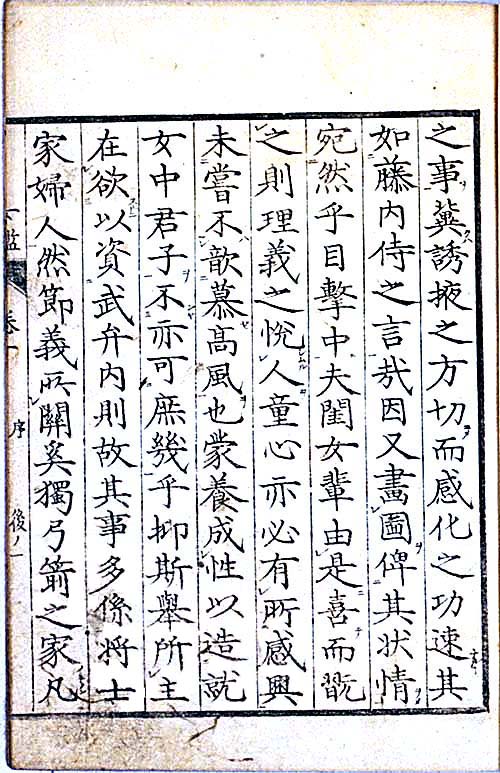 之事冀誘掖之方切而感化之功速其
如藤内侍之言哉因又畫圖俾其状情
宛然乎目擊中夫閨女輩由是喜而翫
之則理義之悦人童心亦必有所感興
未嘗不歆慕高風也蒙養成性以造就
女中君子不亦可庶幾乎抑斯舉所主
在欲以資武弁内則故其事多係将士
家婦人然節義所關奚獨弓箭之家凡
序 後ノ一